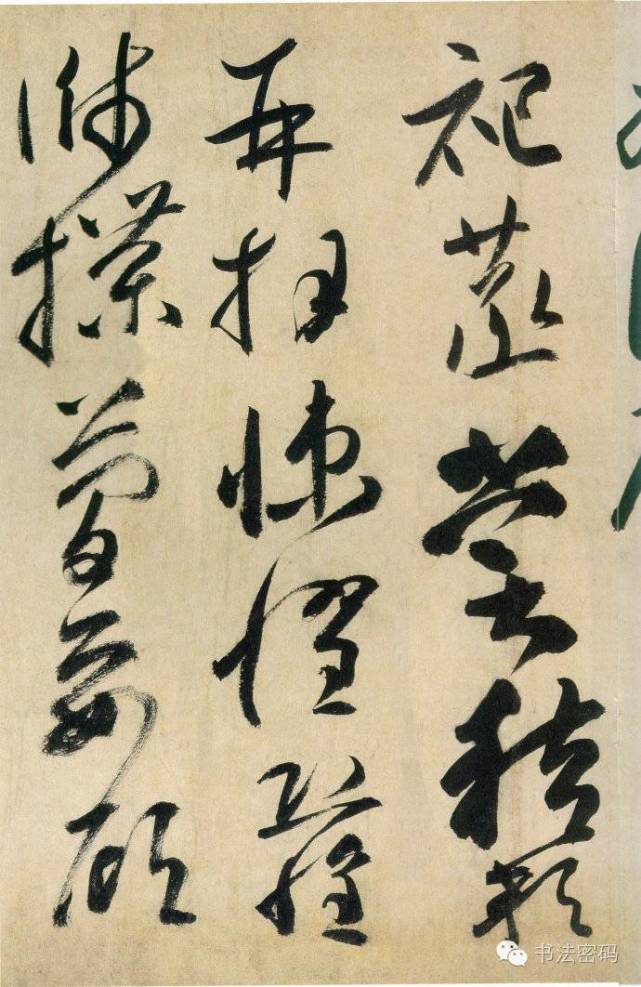 祀蒸嘗稽顙
再拜悚懼恐惶
牋牒簡要顧
书法密码